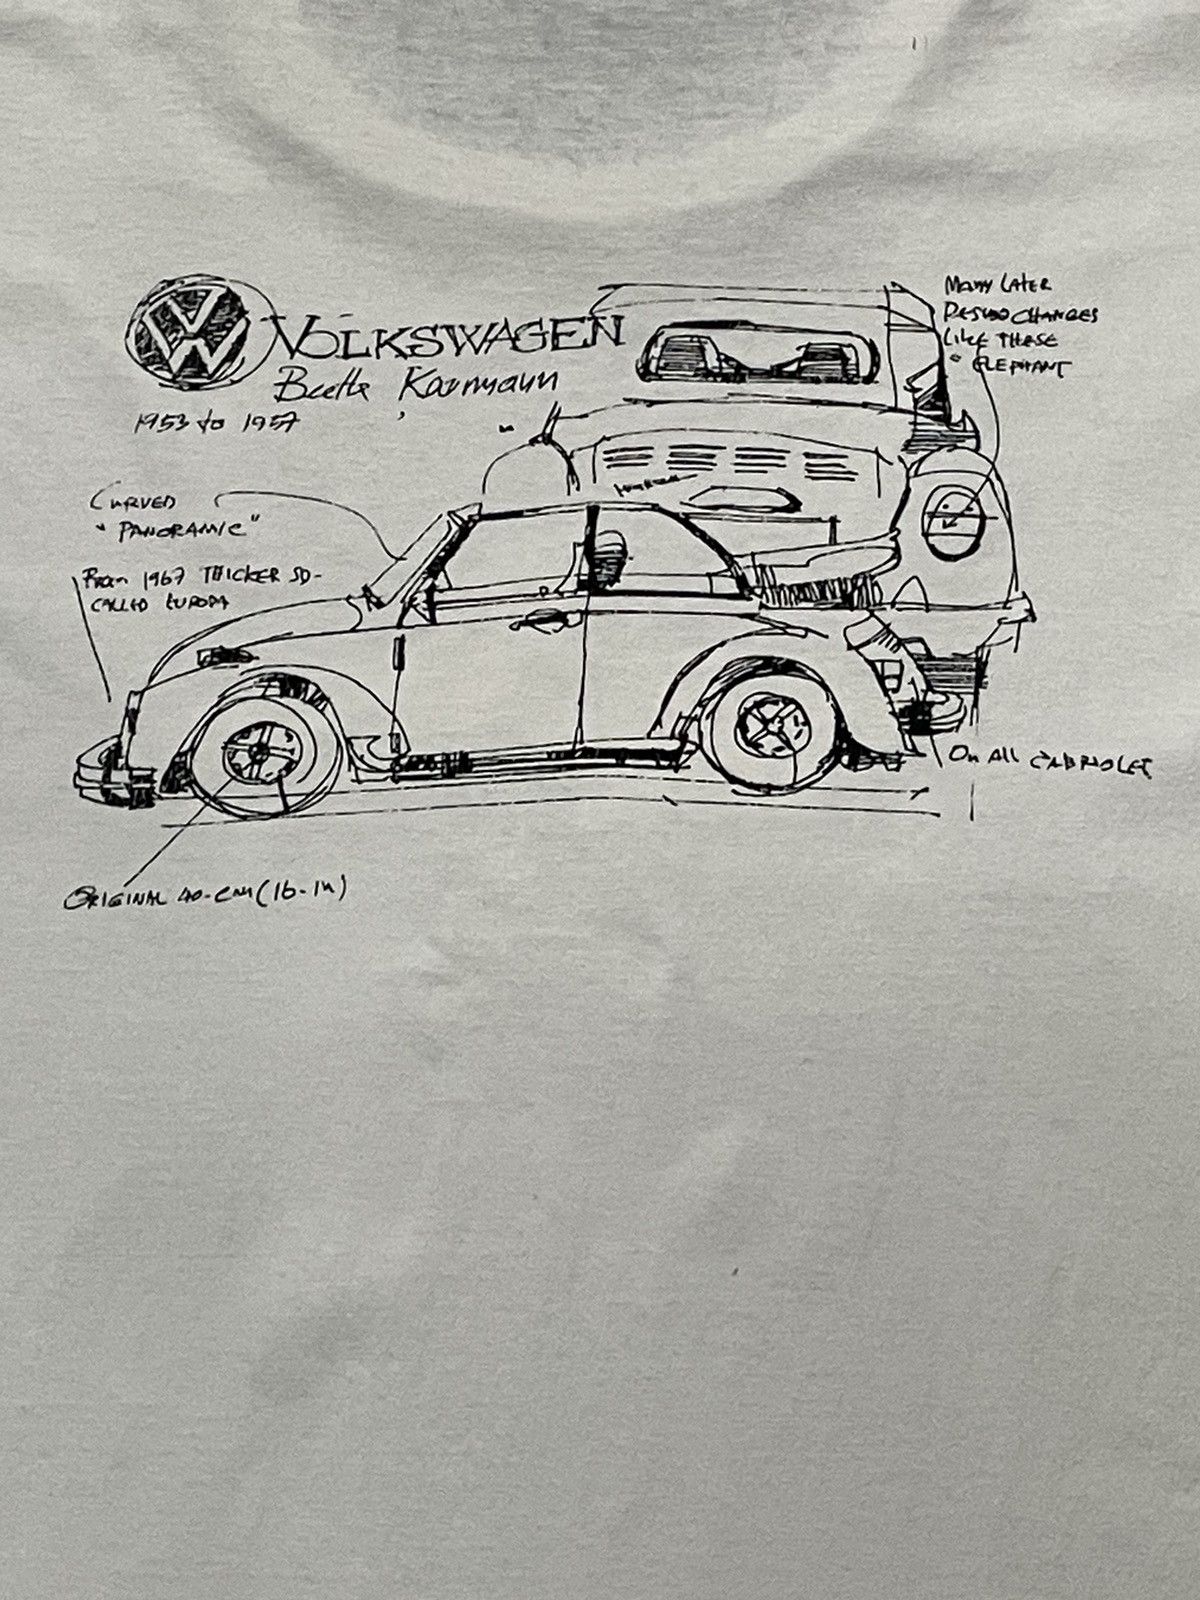 VOLKSWAGEN
Beetle Karmann
1953 to 1957
Many Later
Design CHANGES
Like THESE
"ELEPHANT
CURVED
"PANORAMIC"
From 1967 THICKER SO-
CALLED EUROPA
On All CABRIOLET
ORIGINAL 40-cm (16-in)